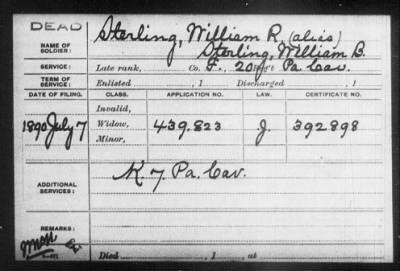 DEAD
NAME OF SOLDIER: Sterling, William R. (alias)
Sterling, William B.
SERVICE: Late rank, Co. F., 20 Reg't Pa. Cav.
TERM OF SERVICE: Enlisted , 1 Discharged , 1
DATE OF FILING. CLASS. APPLICATION NO. LAW. CERTIFICATE NO.
Invalid,
1890 July 7 Widow, 439.823 J. 392898
Minor,
ADDITIONAL SERVICES: K. 7. Pa. Cav.
REMARKS:
Died , 1 , at